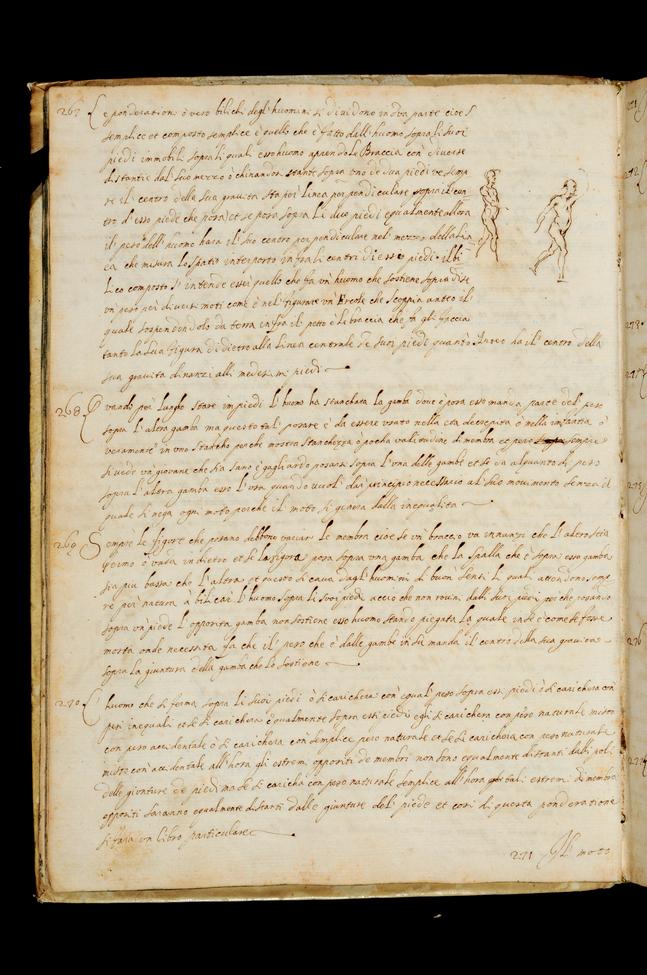 267 Le ponderationi ò vero bilichi degl' huomini si diuidono in dua parte cioè S
semplice et composto semplice è quello che è fatto dall' huomo sopra li suoi
piedi immobili sopra li quali esso huomo aprendo le Braccia con diuerse
distantie dal suo mezzo ò chinandosi stante sopra uno de dua piedi semp
re il centro della sua grauita sta per linea perpendiculare sopra il cen
tro d'esso piede che posa et se posa sopra li due piedi equalmente allora
il peso dell' huomo hara il suo centro perpendiculare nel mezzo della li
ea che misura lo spatio interposto infra li centri di essi piedi. il bi
lico composto s' intende esser quello che fa un' huomo che sostiene sopra di se
un peso per diuersi moti come è nel figurare un Ercole che scoppia anteo il
quale sospendendolo da terra infra il petto è le braccia che tu gli faccia
tanto la sua figura di dietro alla linea centrale de suoi piedi quanto Anteo ha il centro della
sua grauita dinanzi alli medesimi piedi
268. Quando per lungho stare impiedi l' huomo ha stanchata la gamba doue è posa esso manda parte del peso
sopra l' altra gamba ma questo tal' posare è da essere usato nella eta decrepita ò nella infantia ò
veramente in uno stancho perche mostra stanchezza ò pocha valitudine di membra et pero sempre
si uede un giouane che sia sano è gagliardo posarsi sopra l' una delle gambe et se da alquanto di peso
sopra l' altra gamba esso l' usa quando vuol' dar principio necessario al suo mouimento senza il
quale si nega ogni moto perche il moto si genera dalla inequalita
269 Sempre le figure che posano debbono variare le membra cioè se un' braccio va innanzi che l' altro stia
fermo ò vada indietro et se la figura posa sopra una gamba che la spalla che è sopra essa gamba
sia piu bassa che l' altra et questo si caua dagl' huomini di buon' sensi li quali attendono semp
re per natura à bilicar l' huomo sopra li suoi piedi accio che non rouini dalli suoi piedi perche posando
sopra un piede l' opposita gamba non sostiene esso huomo stando piegata la quale in se è come se fosse
morta onde necessita fa che il peso che è dalle gambe in su manda il centro della sua grauita
sopra la giuntura della gamba che lo sostiene
270. L huomo che si ferma sopra li suoi piedi ò si carichera con equal peso sopra essi piedi ò si carichera con
pesi inequali et se si carichera equalmente sopra essi piedi egli si carichera con peso naturale misto
con peso accidentale ò si carichera con semplice peso naturale et se si carichera con peso naturale
misto con accidentale all' hora gli estremi oppositi de membri non sono equalmente distanti dalli poli
delle giunture de piedi ma se si caricha con peso naturale semplice all' hora tali estremi di membra
oppositi saranno equalmente distanti dalle giunture del' piede et cosi di questa ponderatione
si fara un libro particulare
271 Il moto